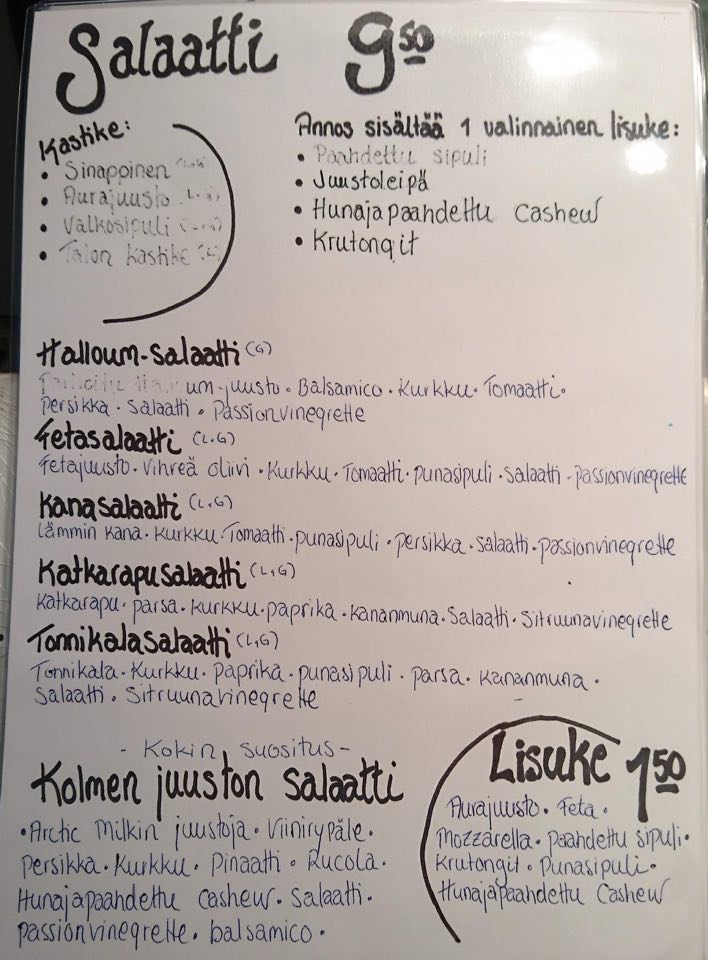 Salaatti 9 50
Kastike:
• Sinappinen
• Aurajuusto (L.G)
• Valkosipuli (L.G)
• Talon kastike (L)
Annos sisältää 1 valinnainen lisuke:
• Paahdettu sipuli
• Juustoleipä
• Hunajapaahdettu cashew
• Krutongit
Halloum-salaatti (G)
um-juusto • Balsamico • Kurkku • Tomaatti •
Persikka • Salaatti • Passionvinegrette
Fetasalaatti (L.G)
Fetajuusto • Vihreä oliivi • Kurkku • Tomaatti • punasipuli • salaatti • passionvinegrette
Kanasalaatti (L,G)
Lämmin kana • Kurkku • Tomaatti • punasipuli • persikka • salaatti • passionvinegrette
Katkarapusalaatti (L,G)
Katkarapu • parsa • Kurkku • paprika • Kananmuna • Salaatti • Sitruunavinegrette
Tonnikalasalaatti (L,G)
Tonnikala • Kurkku • paprika • punasipuli • parsa • Kananmuna •
Salaatti • Sitruunavinegrette
- Kokin suositus -
Kolmen juuston salaatti
• Arctic Milkin juustoja • Viinirypäle •
Persikka • Kurkku • Pinaatti • Rucola •
Hunajapaahdettu Cashew • Salaatti •
passionvinegrette • balsamico •
Lisuke 1 50
Aurajuusto • Feta •
Mozzarella • paahdettu sipuli •
Krutongit • Punasipuli •
Hunajapaahdettu Cashew